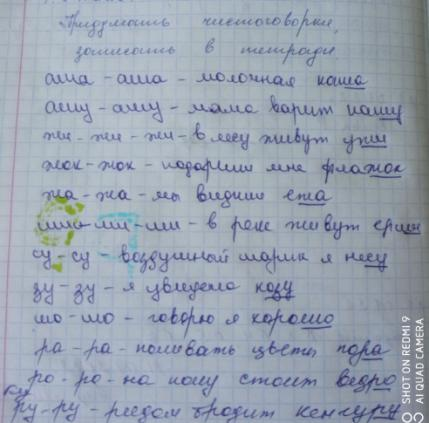 Придумать чистоговорки,
записать в тетради.
аша - аша - молочная каша
ашу - ашу - мама варит кашу
жи - жи - жи - в лесу живут ужи
жок - жок - подарили мне флажок
жа - жа - мы видим ежа
ши - ши - в реке живут ерши
су - су - воздушный шарик я несу
зу - зу - я увидела козу
шо - шо - говорю я хорошо
ра - ра - поливать цветы пора
ро - ро - на полу стоит ведро
ру - ру - рядом бродит кенгуру
SHOT ON REDMI 9
AI QUAD CAMERA